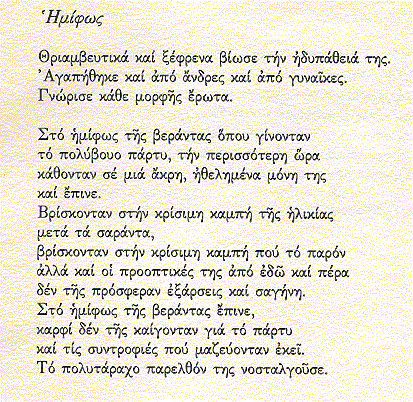 Ἡμίφως
Θριαμβευτικά καί ξέφρενα βίωσε τήν ἡδυπάθειά της.
Ἀγαπήθηκε καί ἀπό ἄνδρες καί ἀπό γυναῖκες.
Γνώρισε κάθε μορφῆς ἔρωτα.
Στό ἡμίφως τῆς βεράντας ὅπου γίνονταν
τό πολύβουο πάρτυ, τήν περισσότερη ὥρα
κάθονταν σέ μιά ἄκρη, ἠθελημένα μόνη της
καί ἔπινε.
Βρίσκονταν στήν κρίσιμη καμπή τῆς ἡλικίας
μετά τά σαράντα,
βρίσκονταν στήν κρίσιμη καμπή πού τό παρόν
ἀλλά καί οἱ προοπτικές της ἀπό ἐδῶ καί πέρα
δέν τῆς πρόσφεραν ἐξάρσεις καί σαγήνη.
Στό ἡμίφως τῆς βεράντας ἔπινε,
καρφί δέν τῆς καίγονταν γιά τό πάρτυ
καί τίς συντροφιές πού μαζεύονταν ἐκεῖ.
Τό πολυτάραχο παρελθόν της νοσταλγοῦσε.